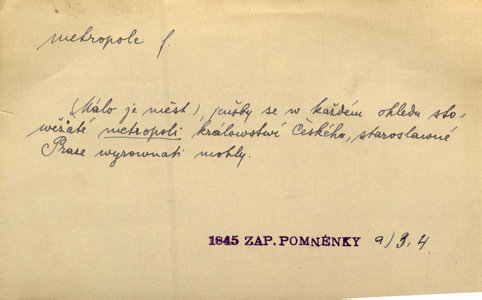 metropole f.
(Málo je měst), jenžby se w každém ohledu sto-
wěžaté metropoli králowstwí Českého, staroslawné
Praze wyrownati mohly.
1845 ZAP. POMNĚNKY a/3.4